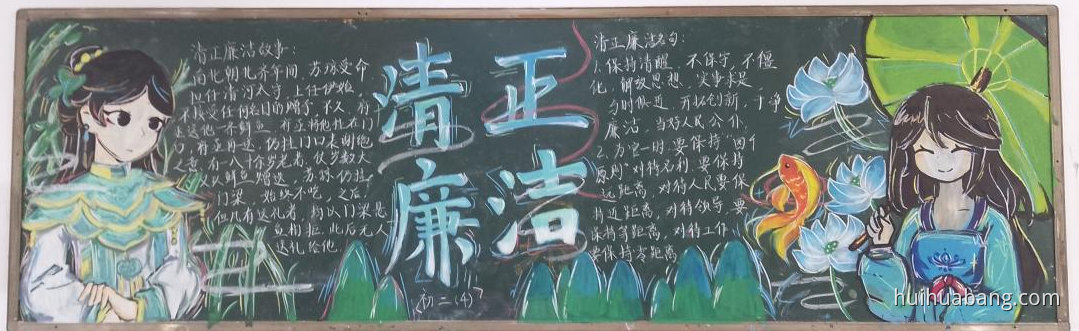 清正廉洁故事:
南北朝北齐年间,苏琼受命
担任清河太守,上任伊始,
不接受任何名目的赠予,不久,有人
送他一个鲜鱼
挂在门口表明他
之意,有一八十个岁老者,仗岁数大
以鲜瓜赠送,苏琼仍挂
门梁,始终不吃,之后,
但凡有送礼者,均以门梁悬
鱼相拒,此后无人
送礼给他。
清 正
廉 洁
初二(4)
清正廉洁名句:
1.保持清醒,不保守,不僵
化,解放思想,实事求是
与时俱进,开拓创新,干净
廉洁,当好人民公仆
2.为官一时,要保持"四个
原则"对待名利,要保持
远距离,对待人民要保
持近距离,对待领导,要
保持等距离,对待工作
要保持零距离
huihuabang.com